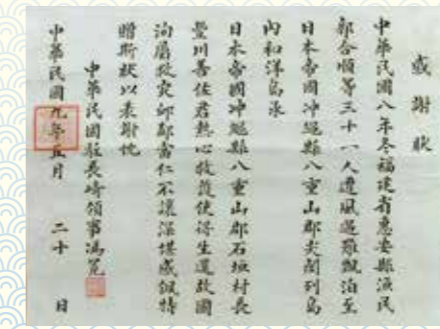 感謝狀
中華民國八年冬福建省惠安縣漁民
郭合順等三十一人遭風遇難飄泊至
日本帝國沖繩縣八重山郡尖閣列島
內和洋島承
日本帝國沖繩縣八重山郡石垣村長
豐川善佐君熱心救護使得生還故國
洵屬救災恤鄰當仁不讓深堪感佩特
贈斯狀以表謝忱
中華民國駐長崎領事馮冕
中華民國九年五月 二十 日